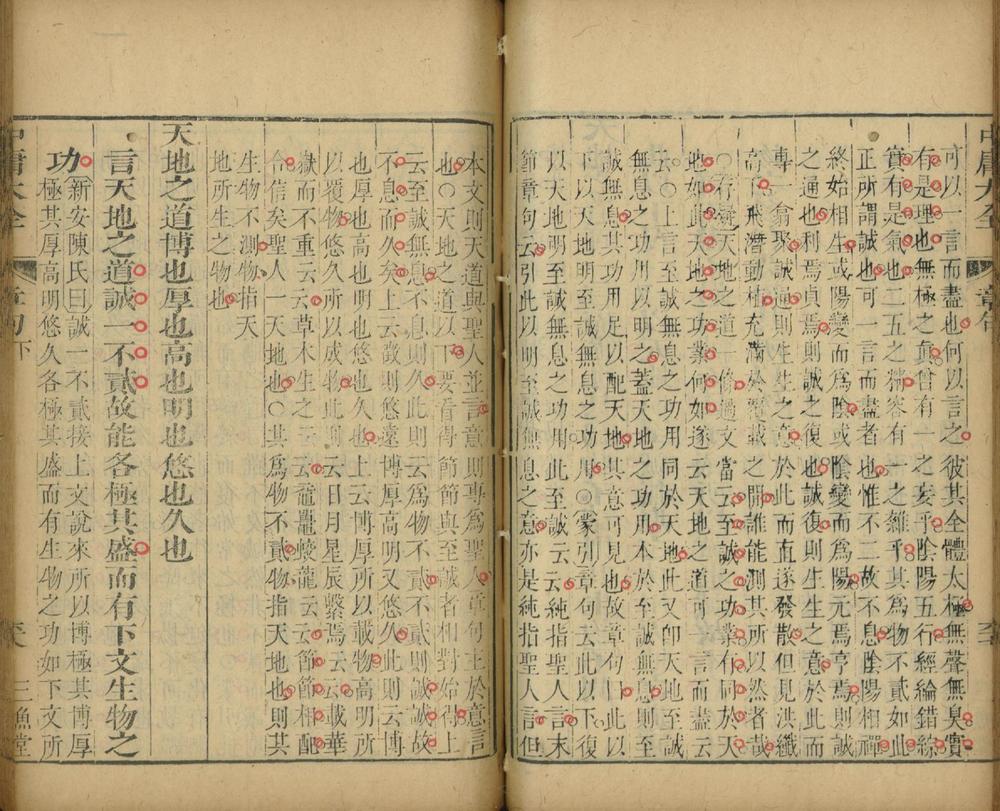 中庸大全
章句
可以一言而盡也何以言之彼其全體太極無聲無臭實
有是理也無極之真曾有一之妄乎陰陽五行經綸錯綜
實有是氣也二五之精容有一之雜乎其爲物不貳如此
正所謂誠也可一言而盡者也惟不二故不息陰陽相禪
終始相生或陽變而爲陰或陰變而爲陽元焉亨焉則誠
之通也利焉貞焉則誠之復也誠復則生生之意於此而
專一翕聚誠通則生生之意於此而直遂發散但見洪纖
高下飛潛動植充滿於覆載之間誰能測其所以然者哉
○存疑天地之道一條過文當云至誠之功業有同於天
地如此天地之功業何如遂云天地之道可一言而盡云
云○上言至誠無息之功用同於天地此又卽天地至誠
無息之功用以明之蓋天地之功用本於至誠無息則至
誠無息其功用足以配天地其意可見也故章句曰此以
下以天地明至誠無息之功用○蒙引章句云此以下復
以天地明至誠無息之功用此至誠云云純指聖人言末
節章句云引此以明至誠無息之意亦是純指聖人言但
本文則天道與聖人並言章則專爲聖人章句主於意言
也○天地之道以下要看得節節與至誠者相對始得上
云至誠無息不息則久此則云爲物不貳不貳則誠誠故
不息而久矣上云徵則悠遠博厚高明又悠久此則云博
也厚也高也明也悠也久也上云博厚所以載物高明所
以覆物悠久所以成物此則云日月星辰繫焉云云載華
嶽而不重云云草木生之云云黿鼉蛟龍云云節節相配
合信矣聖人一天地也○其爲物不貳物指天地也則其
生物不測物指天
地所生之物也
天地之道博也厚也高也明也悠也久也
言天地之道誠一不貳故能各極其盛而有下文生物之
功新安陳氏曰誠一不貳接上文說來所以博極其博厚
極其厚高明悠久各極其盛而有生物之功如下文所
中庸大全
章句下
三魚堂